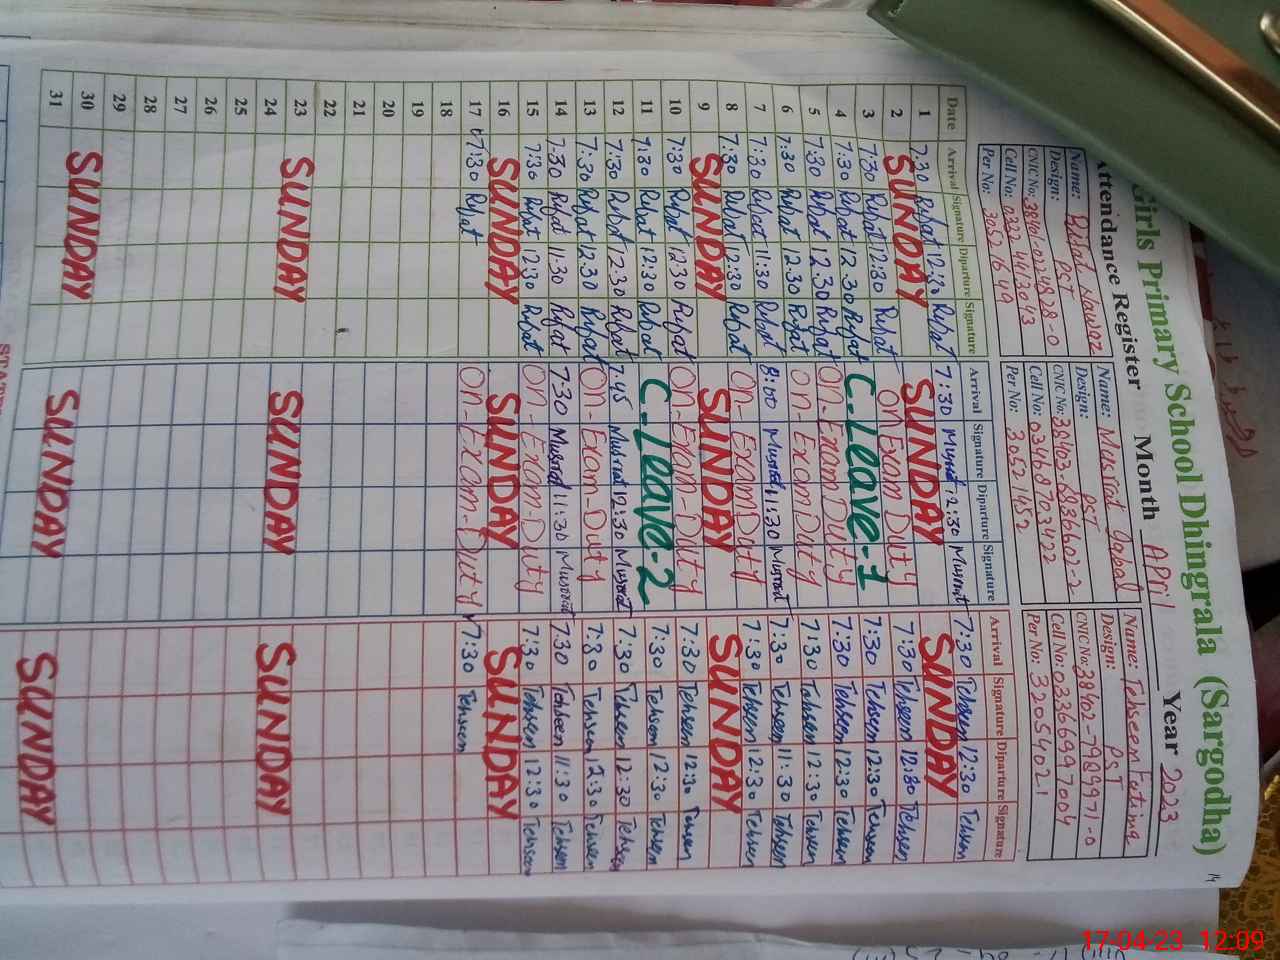 Girls Primary School Dhingrala (Sargodha)
Attendance Register Month April Year 2023
Name: Rifat Nawaz Name: Musrat Iqbal Name: Tehseem Fatima
Design: PST Design: PST Design: PST
CNIC No: 38401-0224828-0 CNIC No: 38403-8936602-2 CNIC No: 38402-7989971-0
Cell No: 0332 4413043 Cell No: 03468703422 Cell No: 03366997004
Per No: 3052 1649 Per No: 3052 1652 Per No: 32054021
Date Arrival Signature Diparture Signature Arrival Signature Diparture Signature Arrival Signature Diparture Signature
1 7:30 Rifat 12:30 Rifat 7:30 Musrat 12:30 Musrat 7:30 Tehseen 12:30 Tehseen
2 SUNDAY SUNDAY SUNDAY
3 7:30 Rifat 12:30 Rifat On Exam Duty 7:30 Tehseen 12:30 Tehseen
4 7:30 Rifat 12:30 Rifat C-Leave-1 7:30 Tehseen 12:30 Tehseen
5 7:30 Rifat 12:30 Rifat On-Exam Duty 7:30 Tehseen 12:30 Tehseen
6 7:30 Rifat 12:30 Rifat On-Exam Duty 7:30 Tehseen 12:30 Tehseen
7 7:30 Rifat 11:30 Rifat 8:00 Musrat 11:30 Musrat 7:30 Tehseen 11:30 Tehseen
8 7:30 Rifat 12:30 Rifat On-Exam Duty 7:30 Tehseen 12:30 Tehseen
9 SUNDAY SUNDAY SUNDAY
10 7:30 Rifat 12:30 Rifat On-Exam-Duty 7:30 Tehseen 12:30 Tehseen
11 7:30 Rifat 12:30 Rifat C-Leave-2 7:30 Tehseen 12:30 Tehseen
12 7:30 Rifat 12:30 Rifat 7:45 Musrat 12:30 Musrat 7:30 Tehseen 12:30 Tehseen
13 7:30 Rifat 12:30 Rifat On-Exam-Duty 7:30 Tehseen 12:30 Tehseen
14 7:30 Rifat 11:30 Rifat 7:30 Musrat 11:30 Musrat 7:30 Tehseen 11:30 Tehseen
15 7:30 Rifat 12:30 Rifat On-Exam-Duty 7:30 Tehseen 12:30 Tehseen
16 SUNDAY SUNDAY SUNDAY
17 7:30 Rifat On-Exam-Duty 7:30 Tehseen
18
19
20
21
22
23 SUNDAY SUNDAY SUNDAY
24
25
26
27
28
29
30 SUNDAY SUNDAY SUNDAY
31
17-04-23 12:09